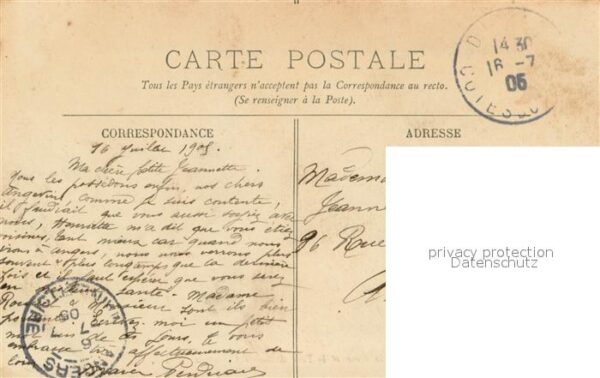 CARTE POSTALE
Tous les Pays étrangers n'acceptent pas la Correspondance au recto.
(Se renseigner à la Poste).
D
14 30
16 - 7
05
COTES
CORRESPONDANCE
16 Juillet 1905
Ma chère petite Jeannette.
Nous les possédons enfin, nos chers
angevins, comme je suis contente,
il faudrait que vous aussi soyiez avec
nous, Henriette m'a dit que vous étiez
voisines, tant mieux car quand nous
irons à angers, nous nous verrons plus
souvent & plus longtemps que la dernière
fois et il faut espérer que vous serez
en santé. Madame
Monsieur sont ils bien
portants. Ecrivez moi un petit
mot un de ces jours, je vous
embrasse affectueusement de
loin
ADRESSE
Mademo
Jeann
96 Rue
A
ANGERS
16
7
05
MAINE
privacy protection
Datenschutz